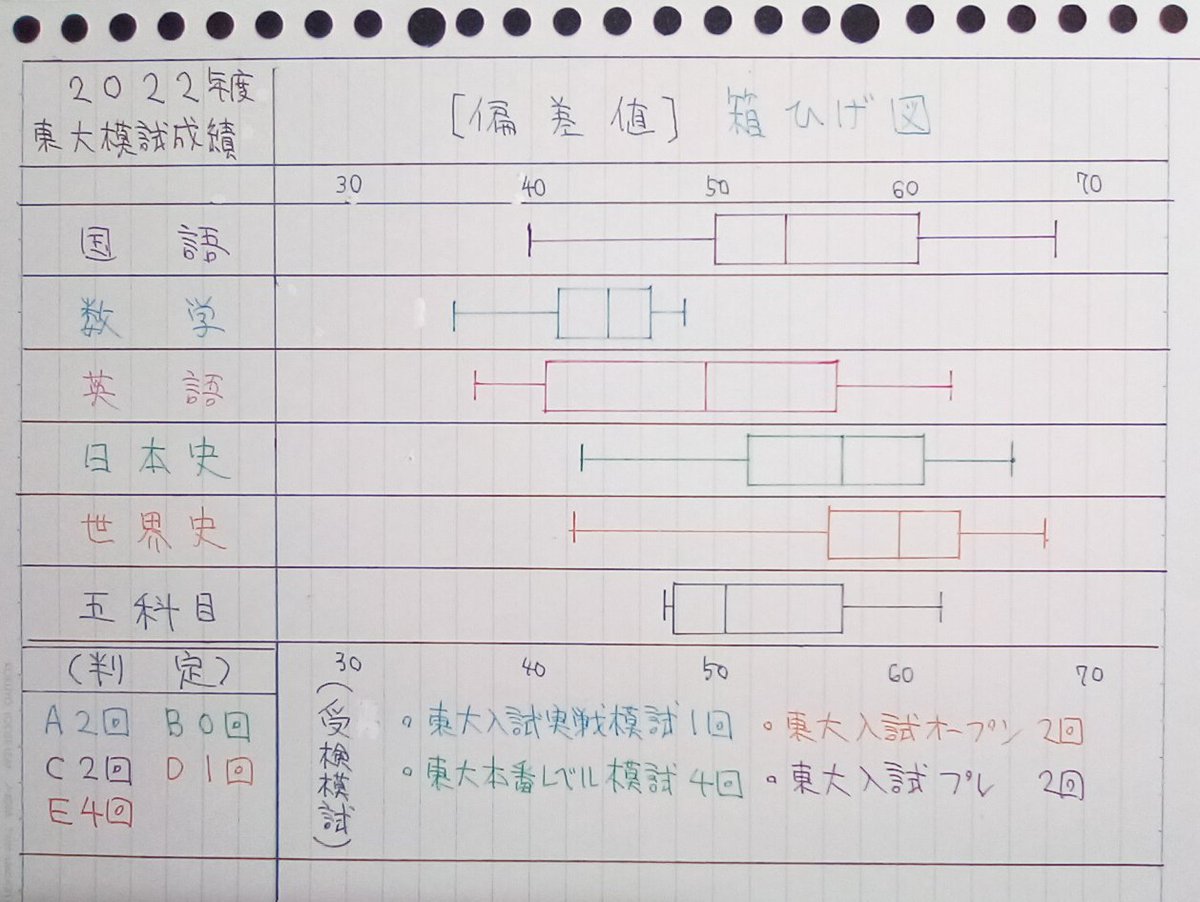 2022年度
東大模試成績
[偏差値] 箱ひげ図
30 40 50 60 70
国語
数学
英語
日本史
世界史
五科目
30 40 50 60 70
(判定)
A2回 B0回
C2回 D1回
E4回
(受検模試)
・東大入試実戦模試1回 ・東大入試オープン 2回
・東大本番レベル模試4回 ・東大入試プレ 2回